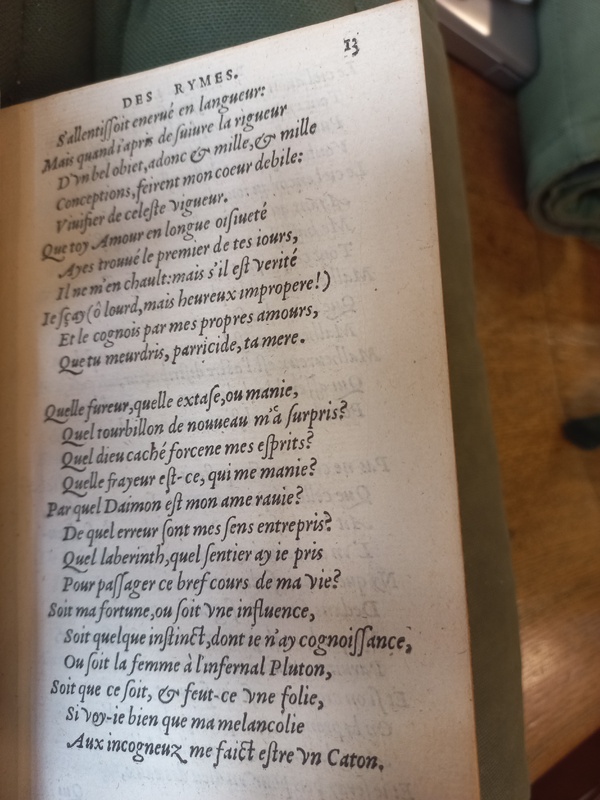 13
DES RYMES.
S'allentiſſoit enerué en langueur:
Mais quand i'apris de ſuiure la rigueur
D'vn bel obiet, adonc & mille, & mille
Conceptions, feirent mon coeur debile:
Viuifier de celeſte vigueur.
Que toy Amour en longue oiſiueté
Ayes trouué le premier de tes iours,
Il ne m'en chault: mais s'il eſt verité
Ie ſçay (ô lourd, mais heureux impropere!)
Et le cognois par mes propres amours,
Que tu meurdris, parricide, ta mere.
Quelle fureur, quelle extaſe, ou manie,
Quel tourbillon de nouueau m'a ſurpris?
Quel dieu caché forcene mes eſprits?
Quelle frayeur eſt-ce, qui me manie?
Par quel Daimon eſt mon ame rauie?
De quel erreur ſont mes ſens entrepris?
Quel laberinth, quel ſentier ay ie pris
Pour paſſager ce bref cours de ma vie?
Soit ma fortune, ou ſoit vne influence,
Soit quelque inſtinct, dont ie n'ay cognoiſſance,
Ou ſoit la femme à l'infernal Pluton,
Soit que ce ſoit, & feut-ce vne folie,
Si voy-ie bien que ma melancolie
Aux incogneuz me faict eſtre vn Caton.